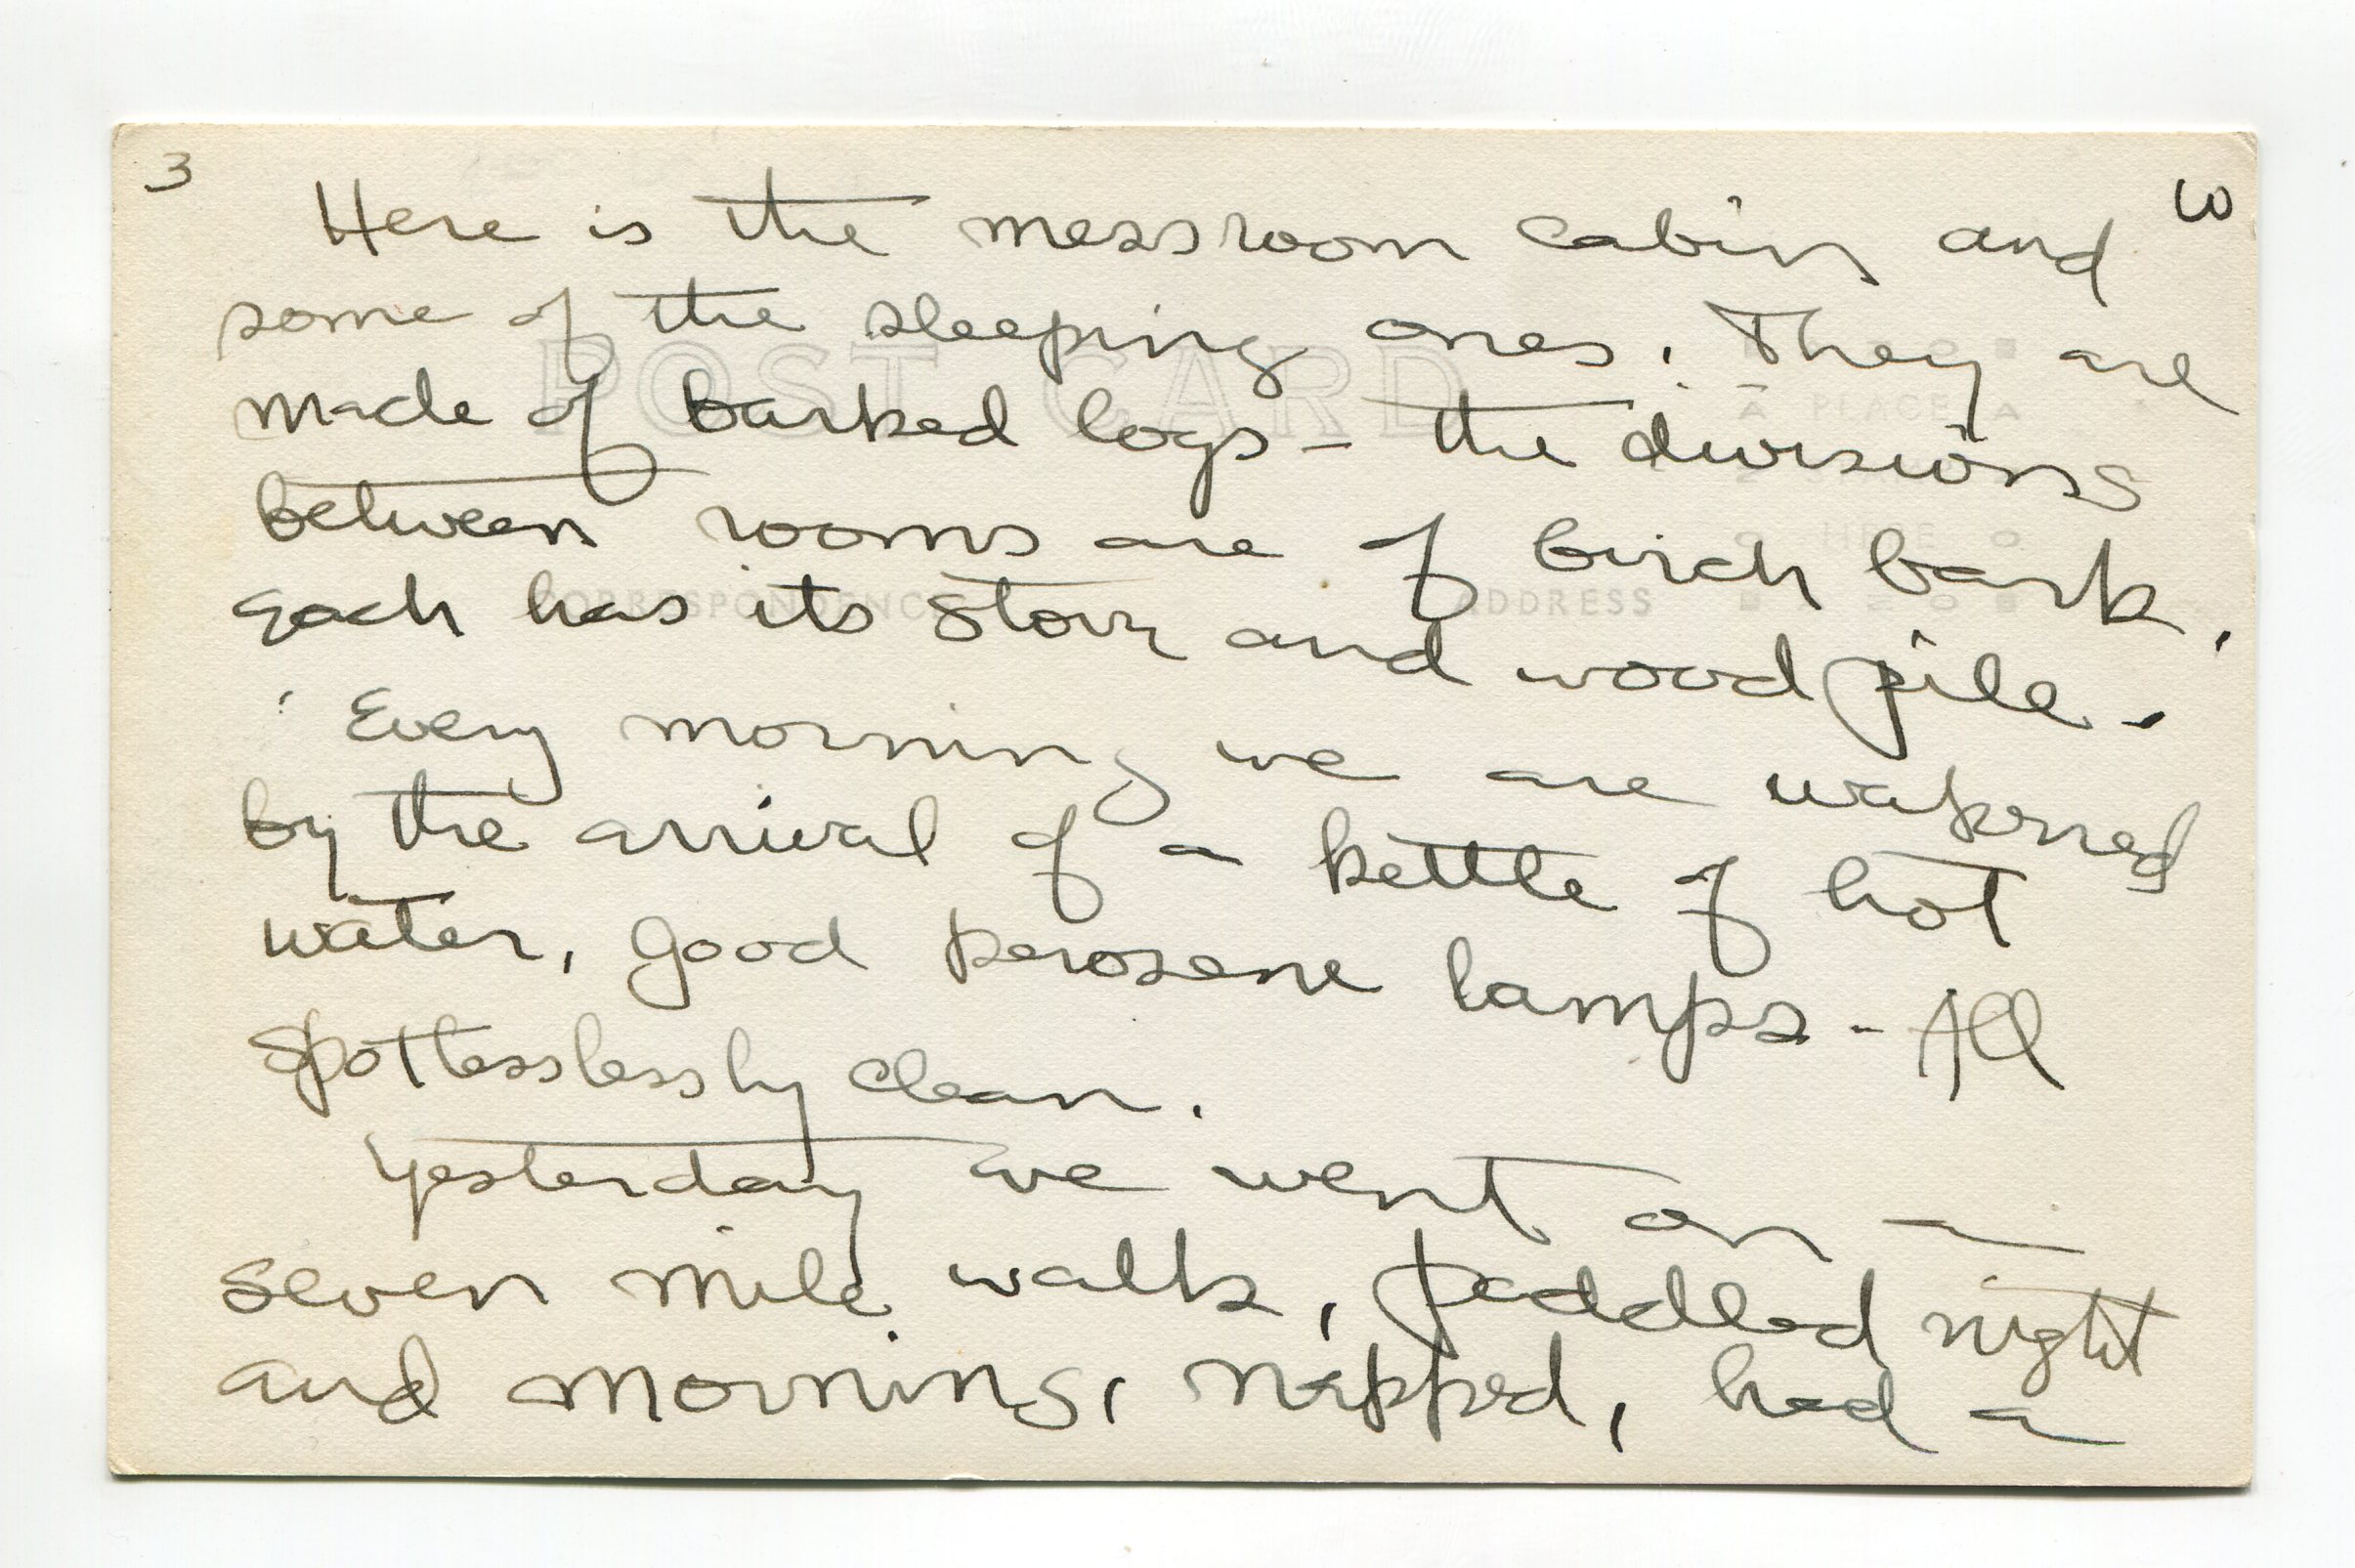 3
W
Here is the messroom cabin and
some of the sleeping ones. They are
made of barked logs - the divisions
between rooms are of birch bark.
Each has its stove and wood pile -
Every morning we are wakened
by the arrival of a kettle of hot
water, good kerosene lamps - All
spotlesslessly clean.
Yesterday we went on a
seven mile walk, paddled night
and morning, napped, had a
POST CARD
PLACE
HERE
CORRESPONDENCE
ADDRESS